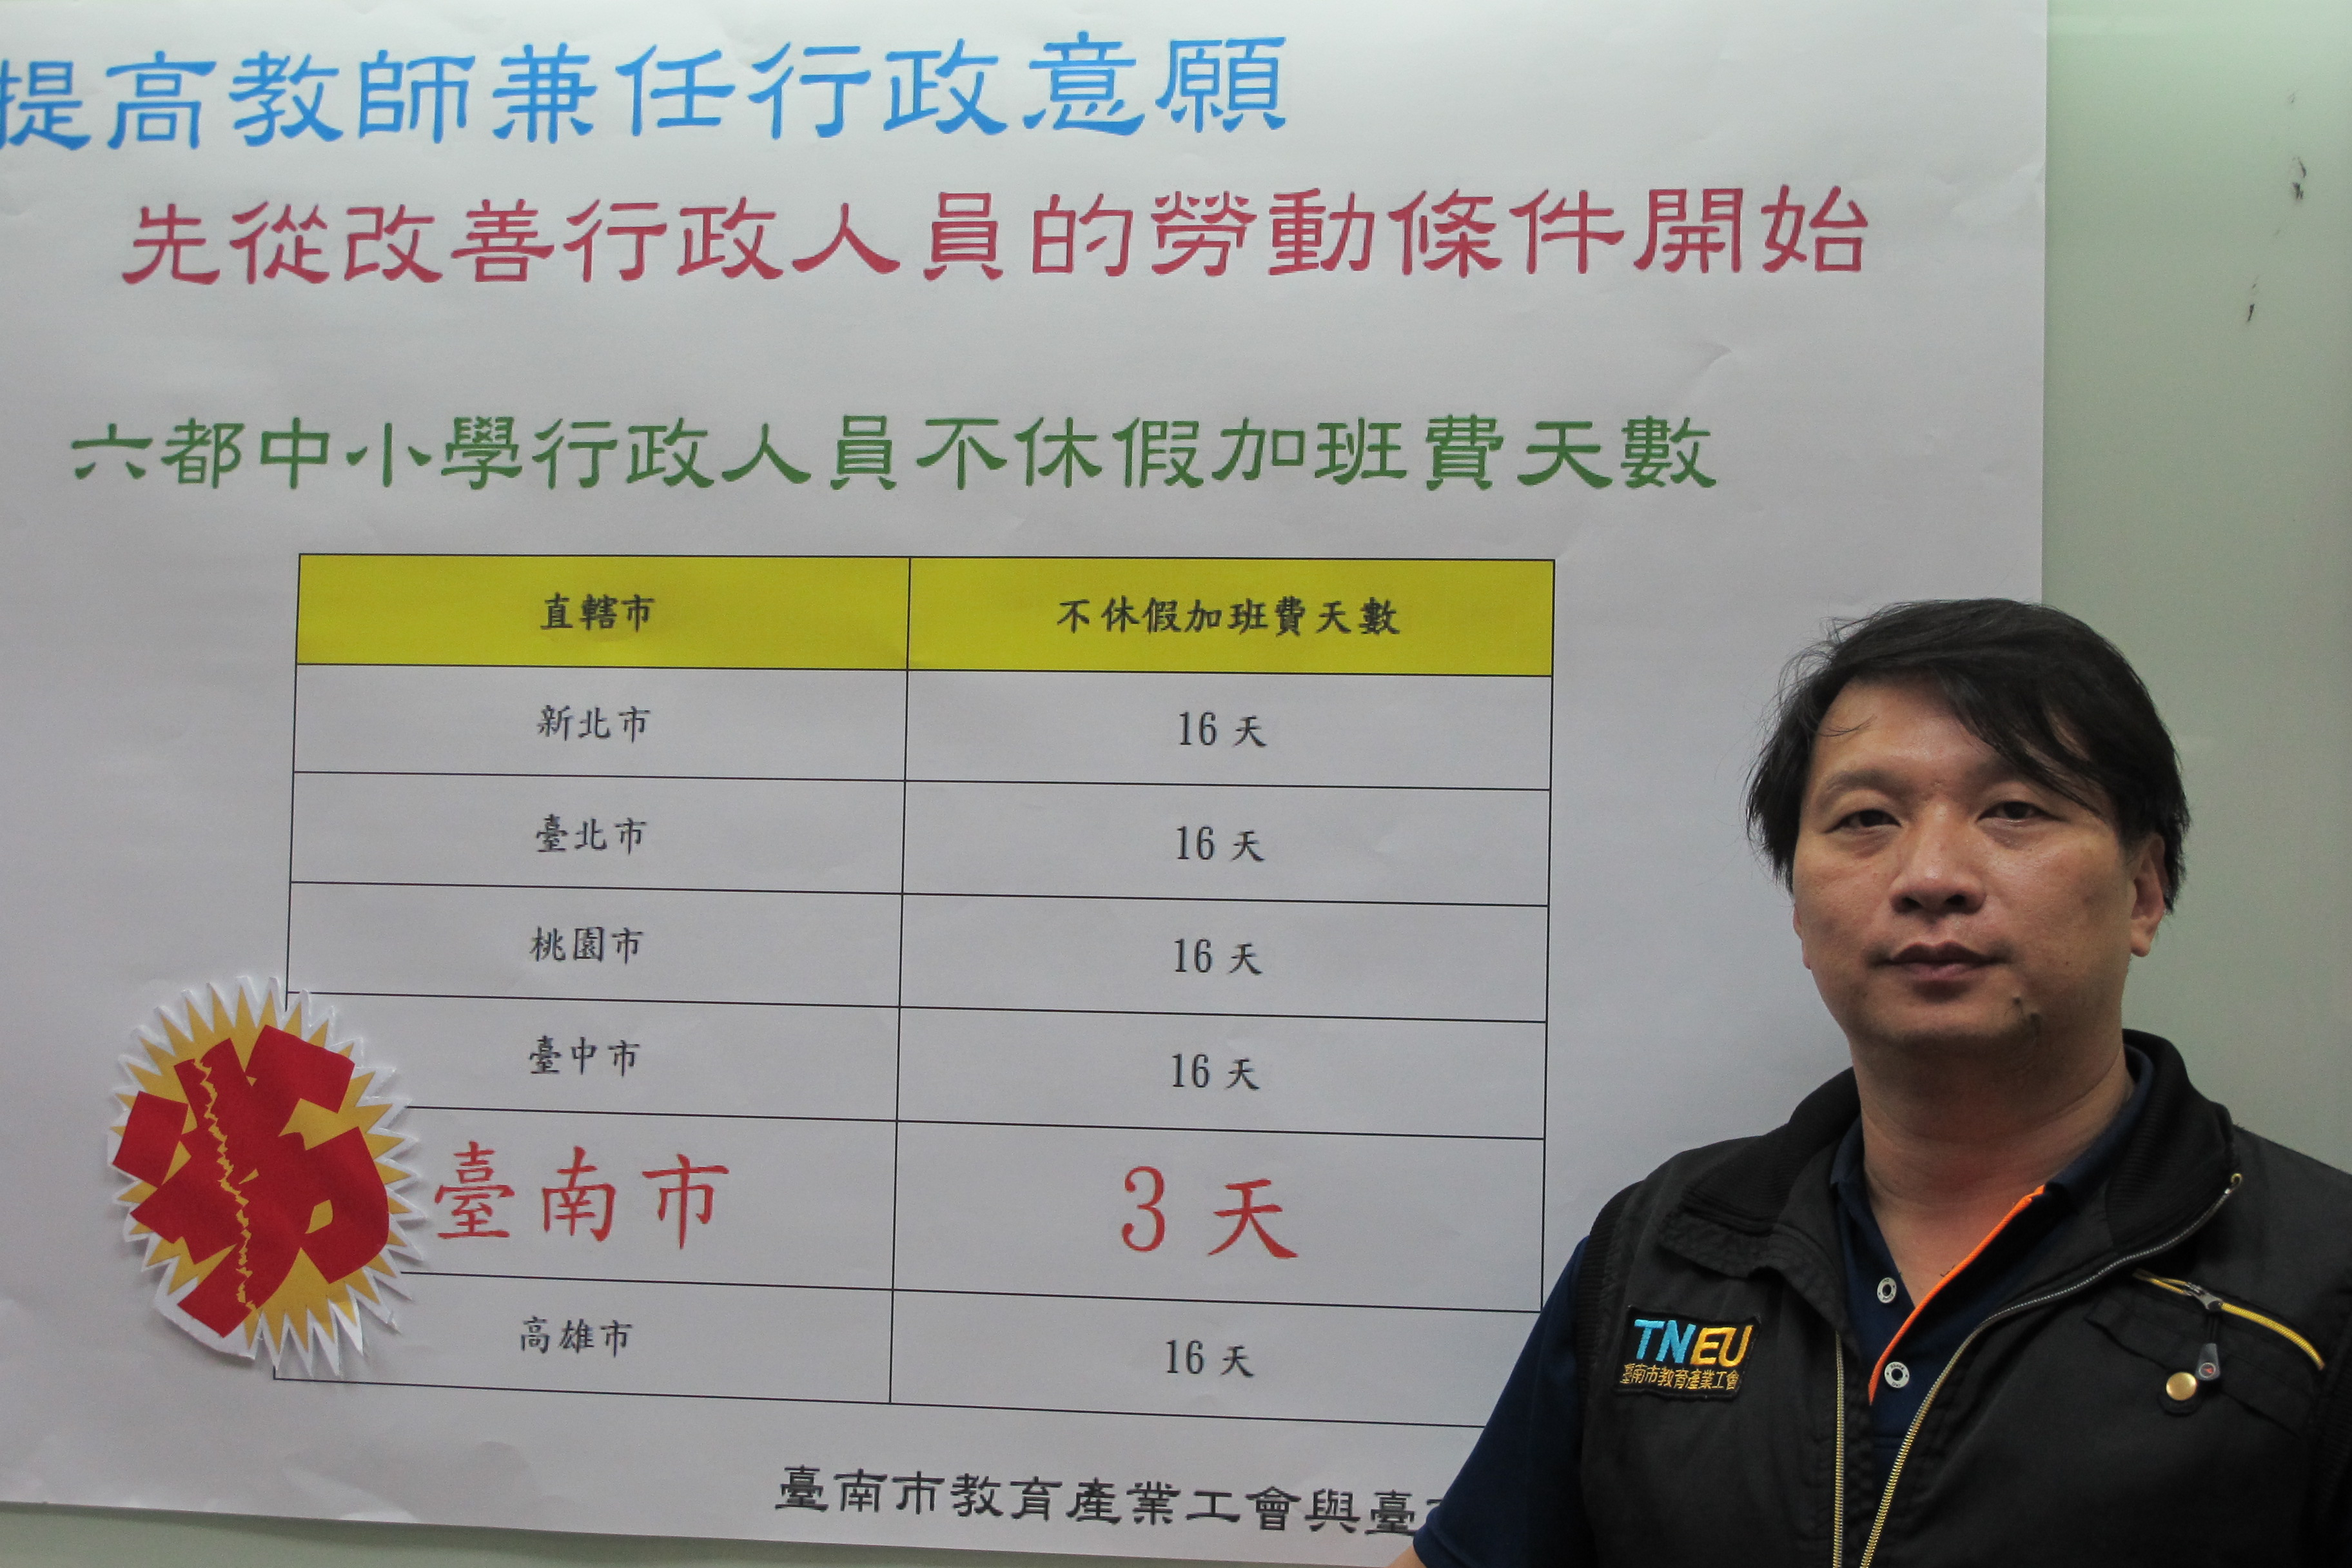 提高教師兼任行政意願
先從改善行政人員的勞動條件開始
六都中小學行政人員不休假加班費天數
直轄市 不休假加班費天數
新北市 16 天
臺北市 16 天
桃園市 16 天
臺中市 16 天
臺南市 3 天
高雄市 16 天
劣
臺南市教育產業工會與臺
TNEU
臺南市教育產業工會